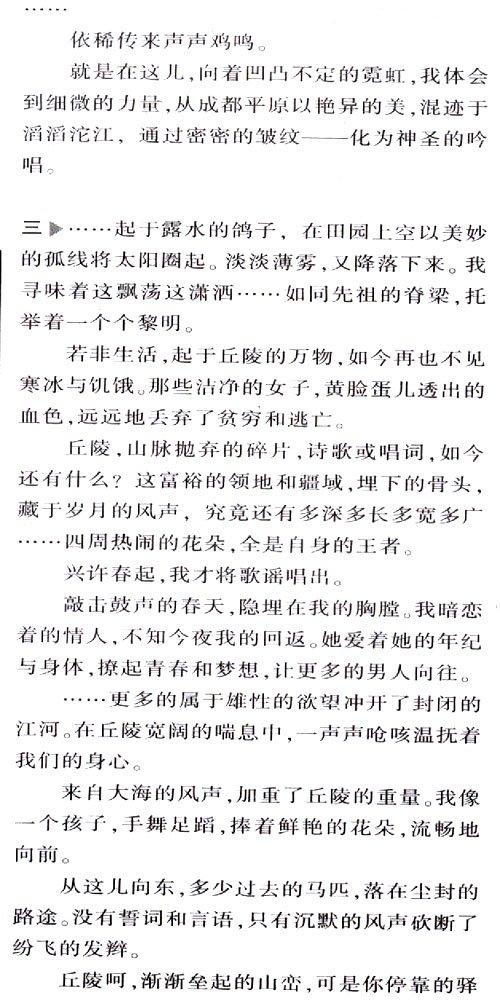 ……
依稀传来声声鸡鸣。
就是在这儿,向着凹凸不定的霓虹,我体会
到细微的力量,从成都平原以艳异的美,混迹于
滔滔沱江，通过密密的皱纹——化为神圣的吟
唱。
三▶……起于露水的鸽子，在田园上空以美妙
的孤线将太阳圈起。淡淡薄雾,又降落下来。我
寻味着这飘荡这潇洒……如同先祖的脊梁,托
举着一个个黎明。
若非生活,起于丘陵的万物,如今再也不见
寒冰与饥饿。那些洁净的女子,黄脸蛋儿透出的
血色,远远地丢弃了贫穷和逃亡。
丘陵,山脉抛弃的碎片,诗歌或唱词,如今
还有什么？这富裕的领地和疆域,埋下的骨头,
藏于岁月的风声，究竟还有多深多长多宽多广
……四周热闹的花朵,全是自身的王者。
兴许春起,我才将歌谣唱出。
敲击鼓声的春天,隐埋在我的胸膛。我暗恋
着的情人,不知今夜我的回返。她爱着她的年纪
与身体,撩起青春和梦想,让更多的男人向往。
……更多的属于雄性的欲望冲开了封闭的
江河。在丘陵宽阔的喘息中,一声声呛咳温抚着
我们的身心。
来自大海的风声,加重了丘陵的重量。我像
一个孩子,手舞足蹈,捧着鲜艳的花朵,流畅地
向前。
从这儿向东,多少过去的马匹,落在尘封的
路途。没有誓词和言语,只有沉默的风声砍断了
纷飞的发辫。
丘陵呵,渐渐垒起的山峦,可是你停靠的驿